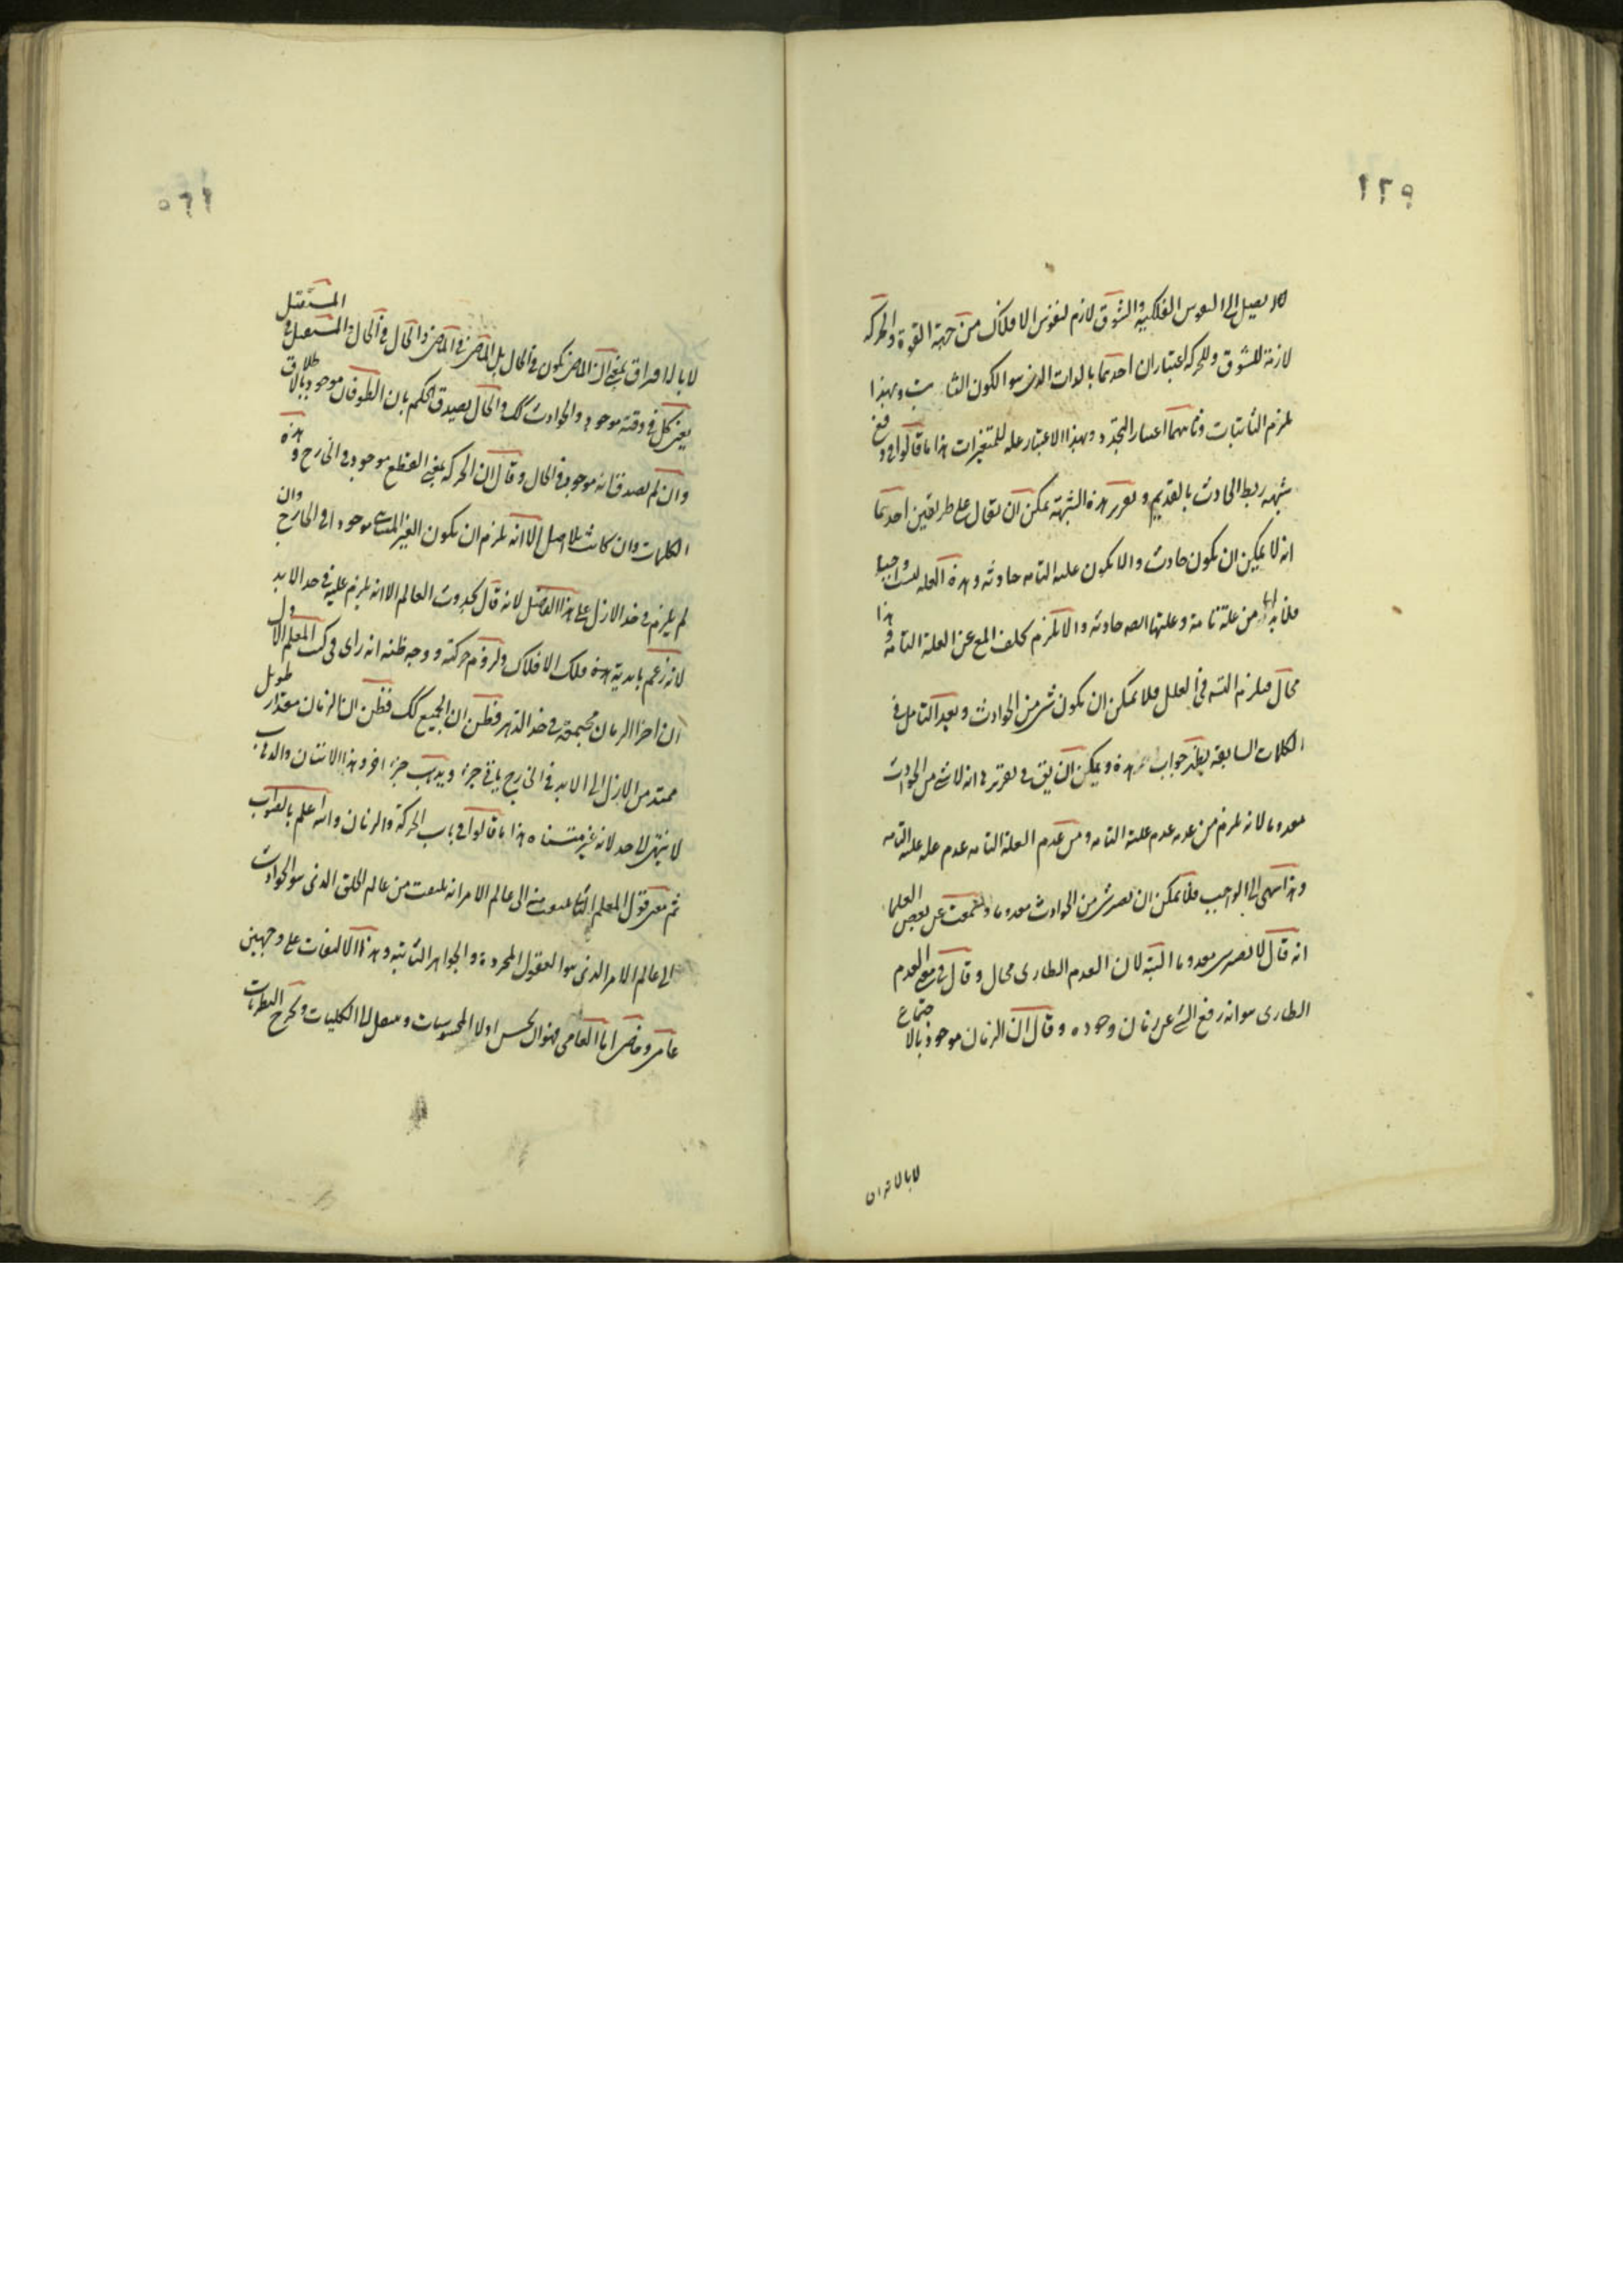 ١٢٩
لا يصل الى النفوس الفلكية والشوق لازم لنفوس الافلاك من جهة القوة والحركة
لازمة للشوق وللحركة اعتباران احدهما بالذات الذى هو الكون الثابت وبهذا
يلزم الثابتات وثانيهما اعتبار التجدد وبهذا الاعتبار علة للمتغيرات هذا ما قالوا فى دفع
شبهة ربط الحادث بالقديم وتقرير هذه الشبهة يمكن ان يقال على طريقين احدهما
انه لا يمكن ان يكون حادث والا يكون علته التامة حادثة وهذه العلة ليست واجبة
فلا بد لها من علة تامة وعلتها ايضا حادثة والا يلزم تخلف المع عن العلة التامة وهذا
محال فيلزم التسه فى العلل فلا يمكن ان يكون شئ من الحوادث وبعد التامل فى
الكلمات السابقة يظهر جواب هذه ويمكن ان يق فى تقريرها انه لا شئ من الحوادث
معدوما لانه يلزم من عدمه عدم علته التامة ومن عدم العلة التامة عدم علة علته التامة
وهذا ينتهى الى الواجب فلا يمكن ان يصير شئ من الحوادث معدوما وسمعت عن بعض العلماء
انه قال لا يصير معدوما البتة لان العدم الطارى محال وقال فى العدم
الطارى هو انه رفع الشئ عن زمان وجوده وقال ان الزمان موجود بالاجتماع
لا بالافتراق
لا بالافتراق بمعنى ان الماضى يكون فى الحال بل الماضى فى الماضى والحال فى الحال والمستقبل فى المستقبل
يعنى كل فى وقته موجود والحوادث كك والحال يصدق الحكم بان الطوفان موجود بالاطلاق
وان لم يصدق انه موجود فى الحال وقال ان الحركة بمعنى القطع موجود فى الخارج وهذه
الكلمات وان كانت بلا اصل الا انه يلزم ان يكون الغير المتناهى موجودا فى الخارج وان
لم يلزم فى حد الازل على هذا الفاضل لانه قال بحدوث العالم الا انه يلزم عليه فى حد الابد
لانه زعم بابدية هذه فلك الافلاك ولزوم حركته ووجه ظنه انه راى فى كتب المعلم الاول
ان اجزاء الزمان مجتمعة فى حد الدهر فظن ان الجميع كك فظن ان الزمان مقدار طويل
ممتد من الازل الى الابد فى الخارج ياتى جزء ويذهب جزء اخر وهذا الاتيان والذهاب
لا ينتهى الى حد لانه غير متناه هذا ما قالوا فى باب الحركة والزمان والله اعلم بالصواب
ثم معنى قول المعلم الثانى يلتفت منه الى عالم الامر انه يلتفت من عالم الخلق الذى هو الحوادث
الى عالم الامر الذى هو العقول المجردة والجواهر الثابتة وهذا الالتفات على وجهين
عامى وخاصى اما العامى فهو ان يحس اولا المحسوسات وينتقل الى الكليات ويخرج النظريات